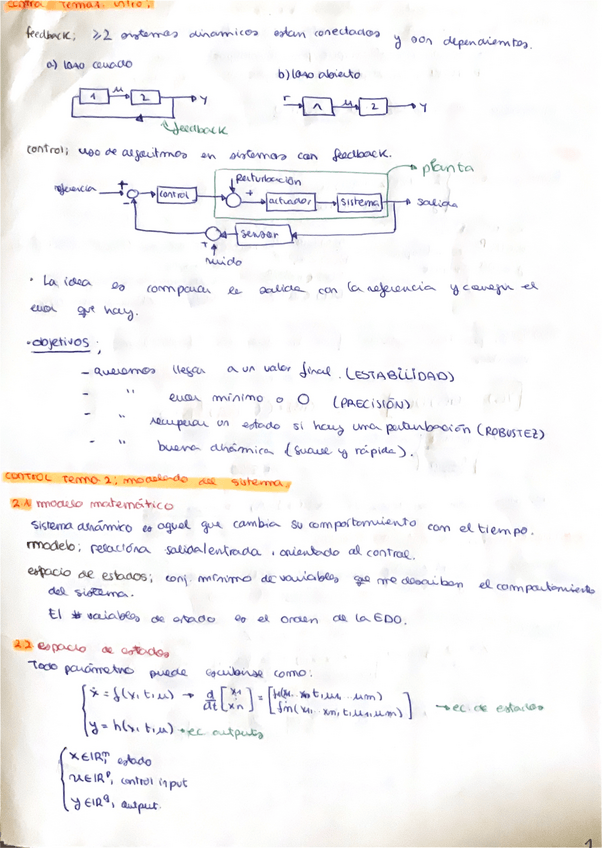 CONTROL TEMA 1. intro;
feedback; ≥2 sistemas dinámicos están conectados y son dependientes.
a) lazo cerrado
b) lazo abierto
1 u 2 y
r 1 u 2 y
feedback
control; uso de algoritmos en sistemas con feedback.
planta
perturbación
referencia + - control + actuador sistema salida
sensor
+
ruido
· La idea es comparar la salida con la referencia y corregir el
error que hay.
· objetivos;
- queremos llegar a un valor final. (ESTABILIDAD)
- " error mínimo o O (PRECISIÓN)
- " recuperar un estado si hay una perturbación (ROBUSTEZ)
- " buena dinámica (suave y rápida).
CONTROL TEMA 2; modelado del sistema.
2.1 modelo matemático
Sistema dinámico es aquel que cambia su comportamiento con el tiempo.
modelo; relación salida/entrada, orientado al control.
espacio de estados; conj. mínimo de variables que me describen el comportamiento
del sistema.
El # variables de estado es el orden de la EDO.
2.2 espacio de estados
Todo parámetro puede escribirse como:
ẋ = f(x, t, u) → d/dt [x1 xn] = [f1(x1 .. xn, t, u1 .. um) fn(x1 .. xn, t, u1, um)] → ec. de estados
y = h(x, t, u) → ec outputs
x ∈ IRⁿ, estado
u ∈ IRᵖ, control input
y ∈ IR^q, output.
1